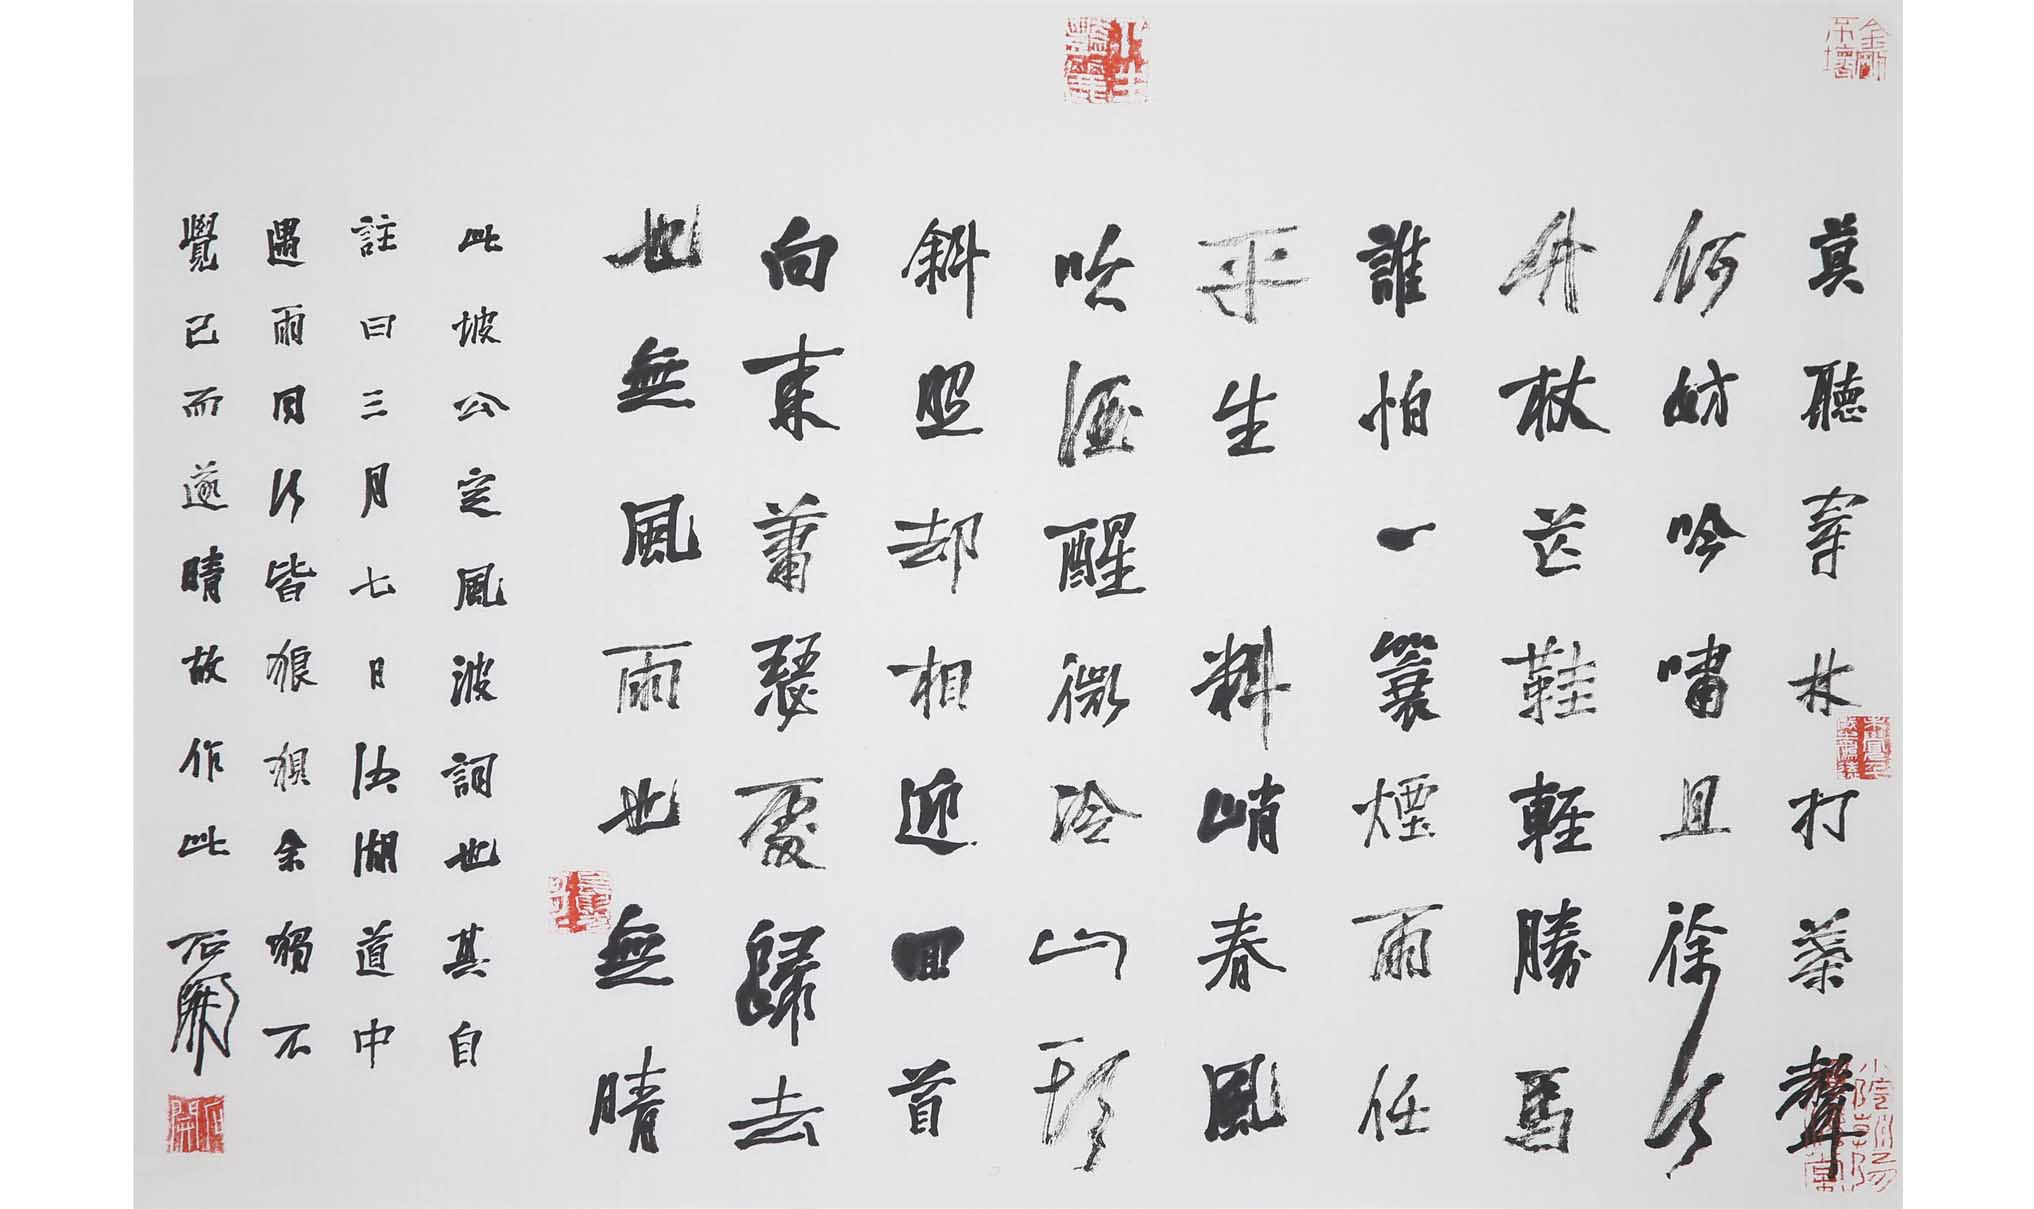 金剛不壞
莫聽穿林打葉聲
何妨吟嘯且徐行
竹杖芒鞋輕勝馬
誰怕一簑煙雨任
平生 料峭春風
吹酒醒微冷山頭
斜照却相迎回首
向來蕭瑟處歸去
也無風雨也無晴
此坡公定風波詞也其自
註曰三月七日沙湖道中
遇雨同行皆狼狽余獨不
覺已而遂晴故作此 石開
石開